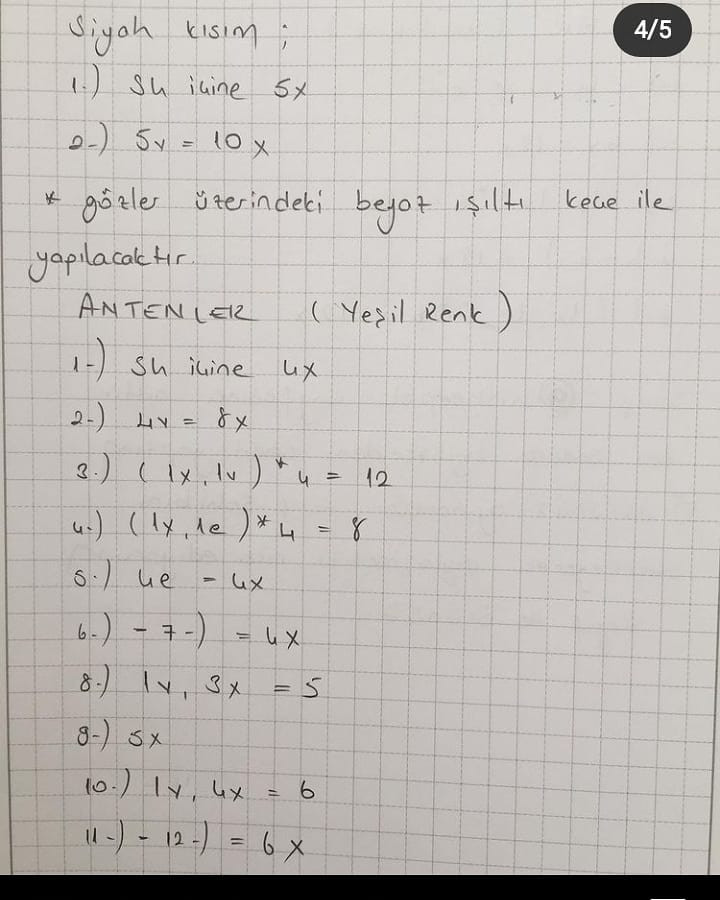 4/5
Siyah kısım ;
1-) SH içine 5x
2-) 5v = 10x
* gözler üzerindeki beyaz ışıltı keçe ile
yapılacaktır.
ANTENLER ( Yeşil Renk )
1-) SH içine 4x
2-) 4v = 8x
3-) ( 1x, 1v ) * 4 = 12
4-) ( 1x, 1e ) * 4 = 8
5-) 4e = 4x
6-) - 7-) = 4x
8-) 1v, 3x = 5
9-) 5x
10-) 1v, 4x = 6
11-) - 12-) = 6x